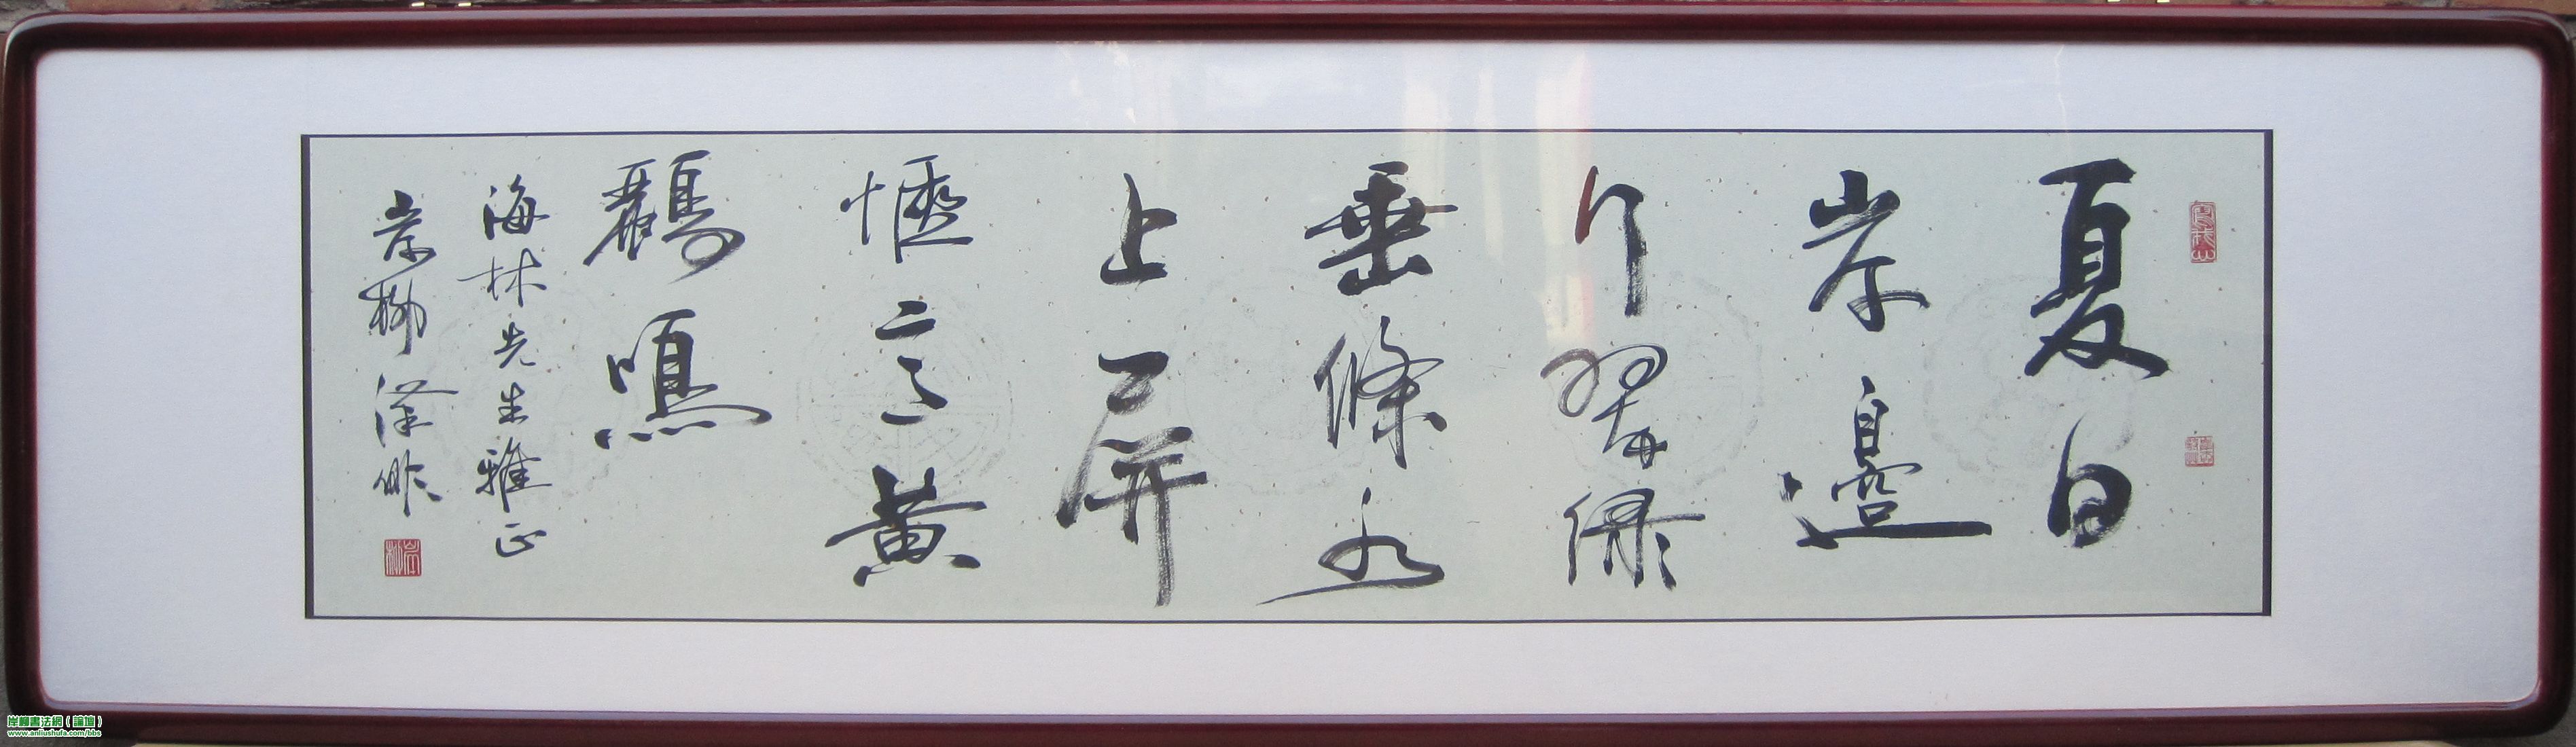 夏日
岸邊
行翠綠
垂條水
上屏
愜意黄
鸝鳴
海林先生雅正
岸柳
岸柳書法網（論壇）
www.anliushufa.com/bbs